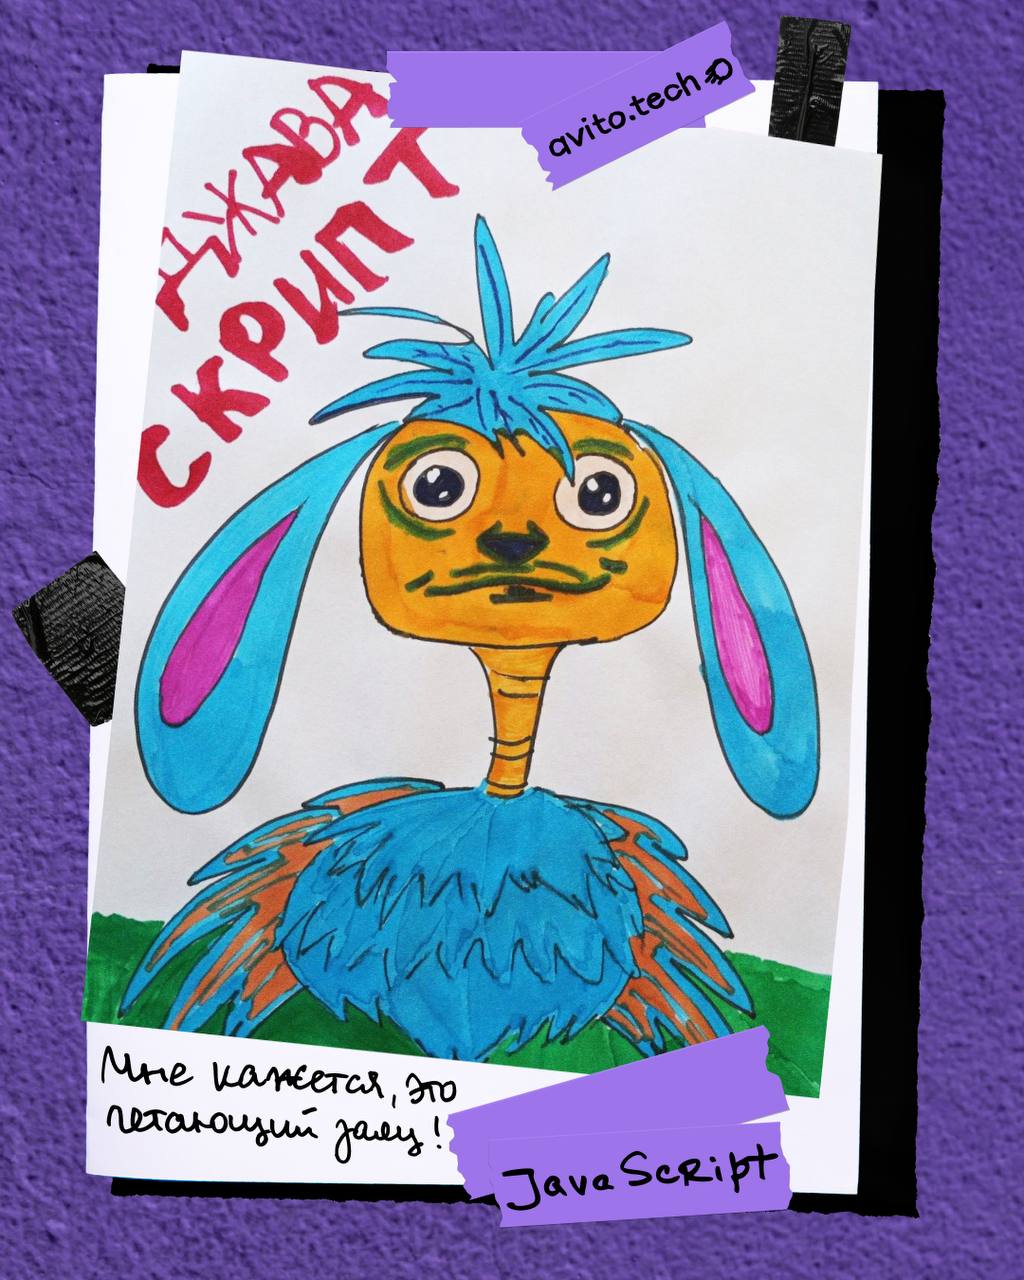 avito.tech
ДЖАВА
СКРИПТ
Мне кажется, это
летающий заяц!
JavaScript